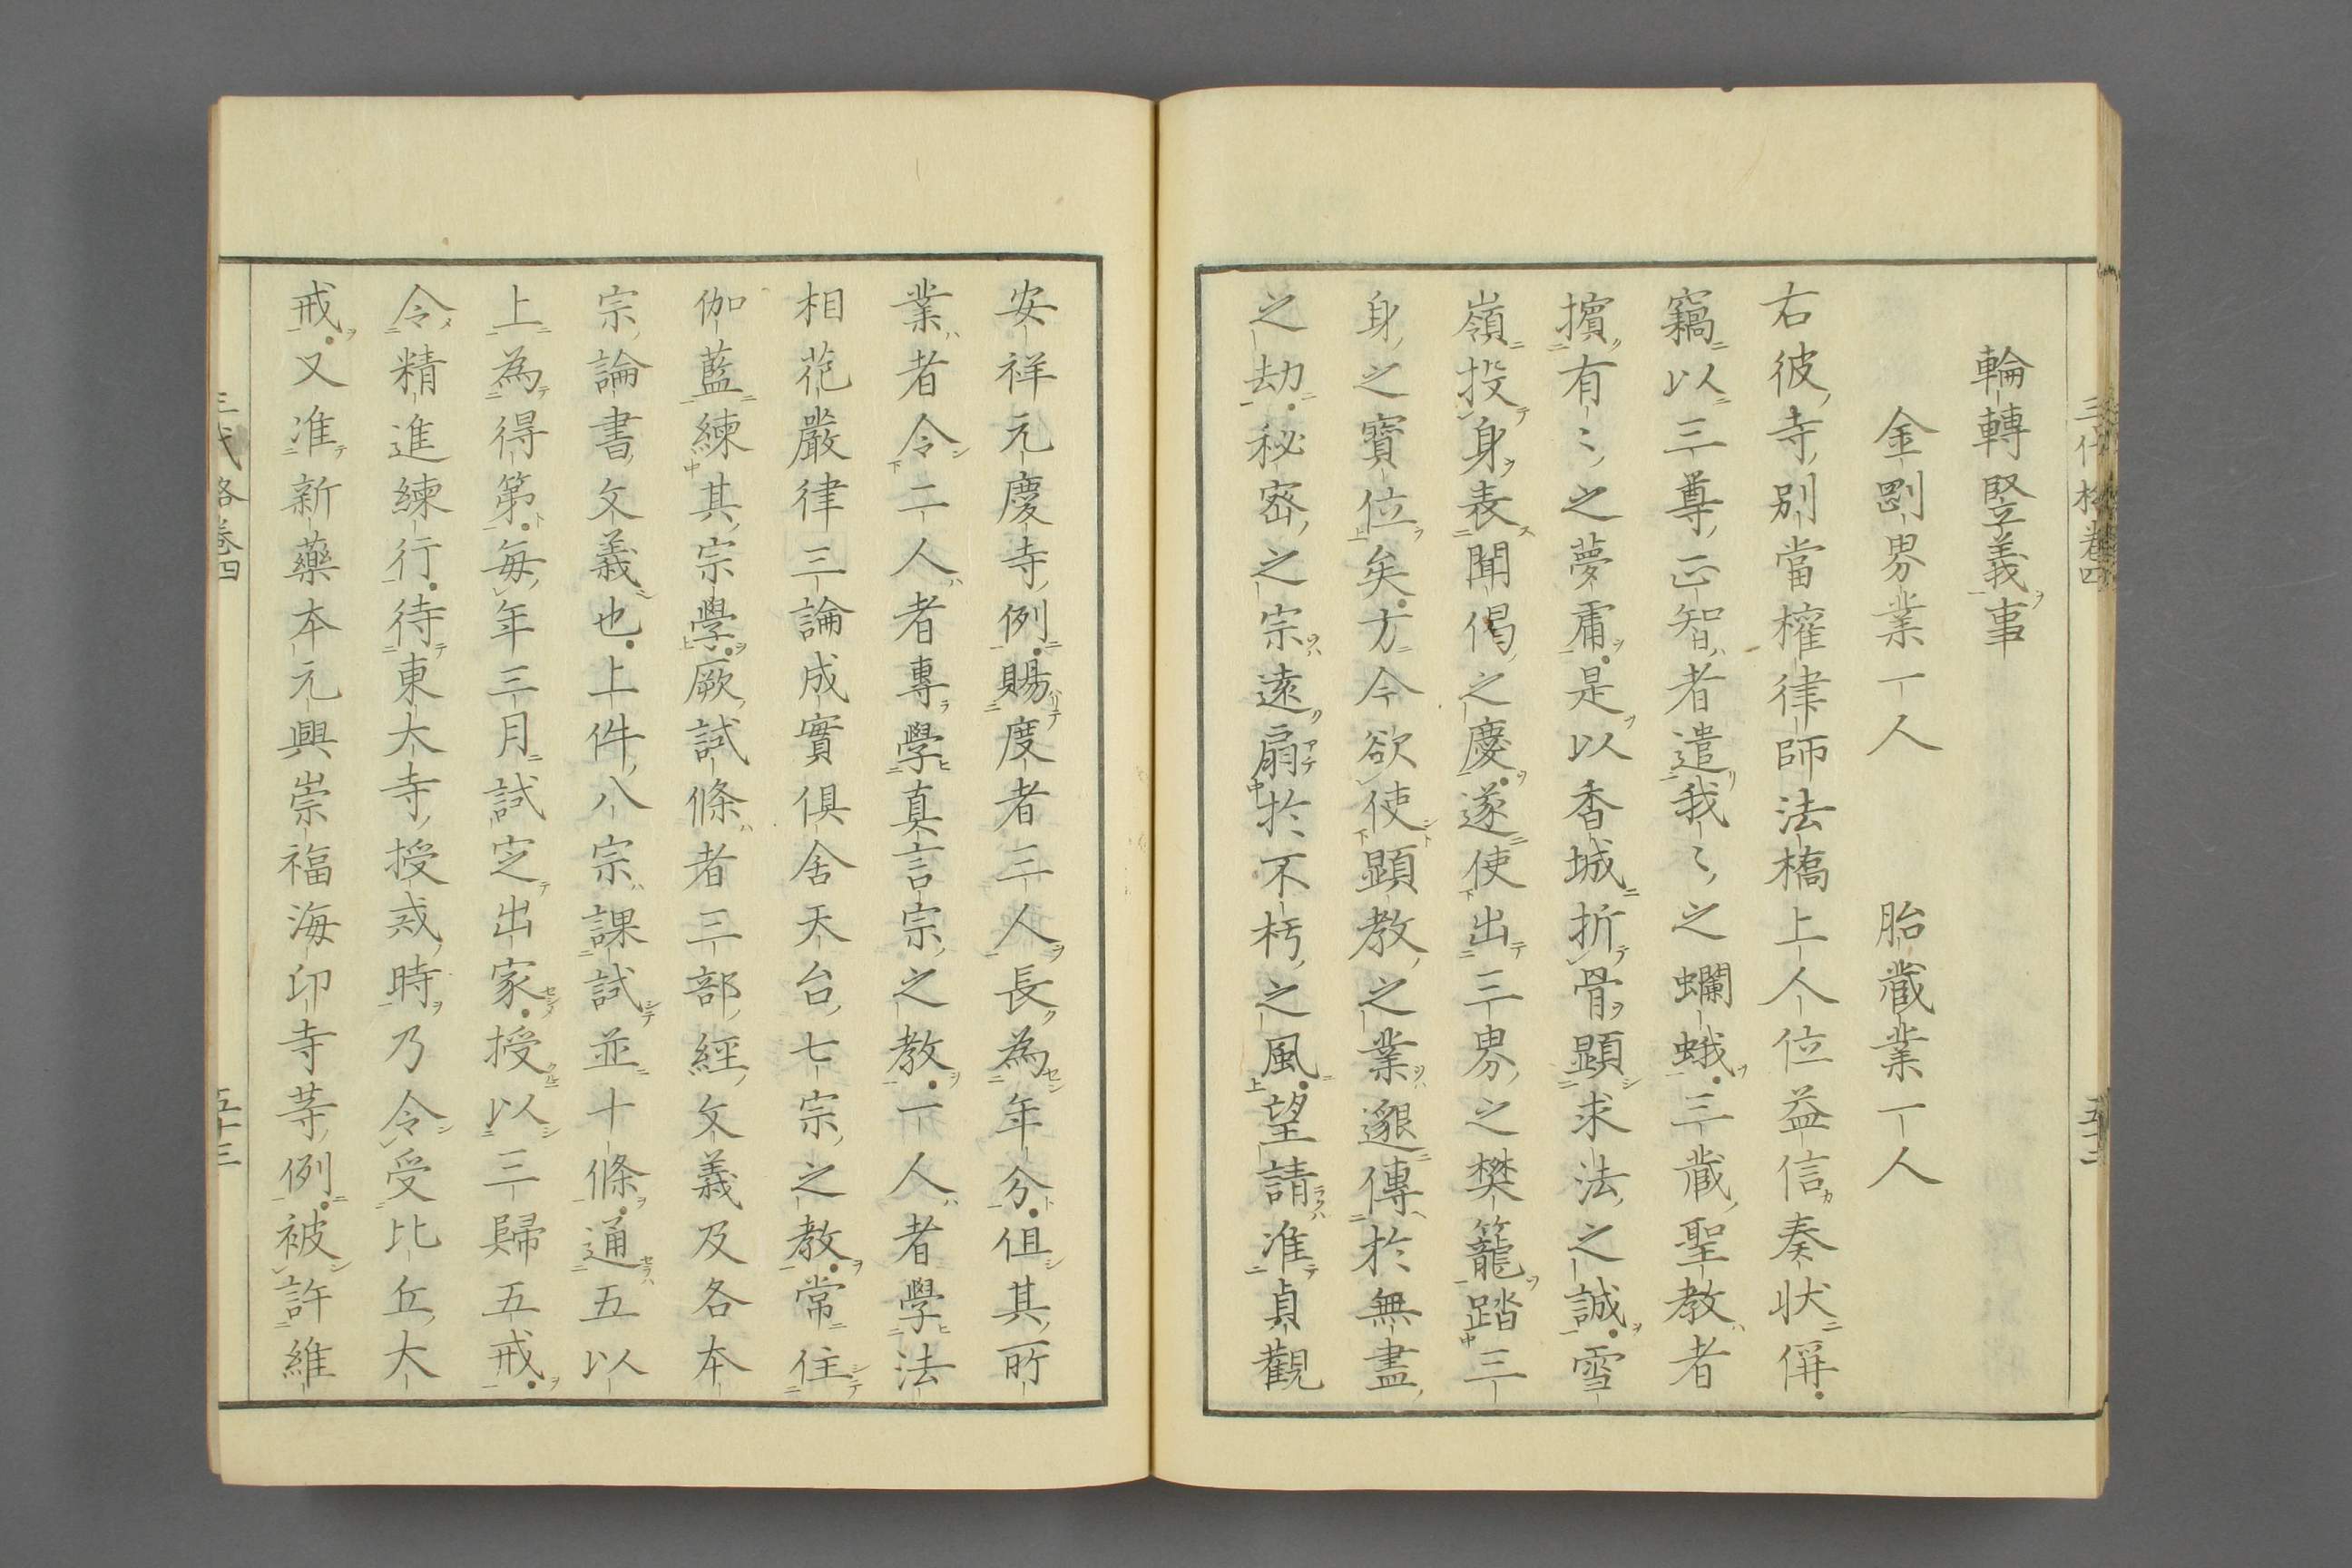 輪轉竪義事
金剛界業一人　胎蔵業一人
右彼寺別當權律師法橋上人位益信奏状偁
竊以三尊正智者遣我〻之蠟蛾三蔵聖教者
擯有〻之夢虎是以香城折骨顕求法之誠雪
嶺投身表聞偈之慶遂使出三界之樊籠踏三
身之寶位矣方今欲使顕教之業邈傳於無盡
之劫秘宻之宗遠扇於不朽之風望請准貞觀
安祥元慶寺例賜度者三人長為年分但其所
業者令二人者專學真言宗之教一人者學法
相花嚴律三論成實倶舎天台七宗之教常住
伽藍練其宗學厥試條者三部經文義及各本
宗論書文義也上件八宗課試並十條通五以
上為得第毎年三月試定出家授以三歸五戒
令精進練行待東大寺授戒時乃令受比丘大
戒又准新藥本元興崇福海印寺等例被許維